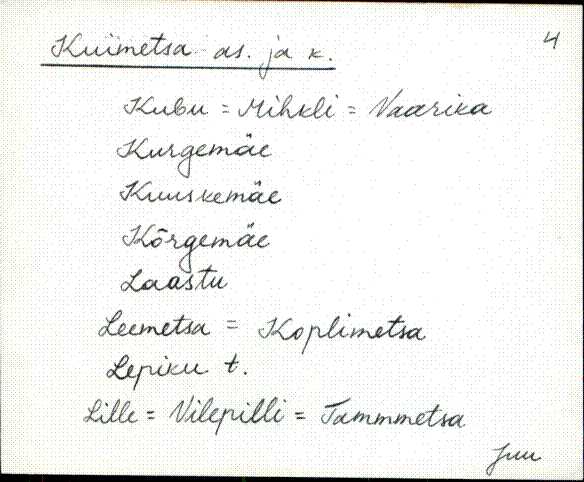 Kuimetsa as. ja k. 4
Kubu = Mihkli = Vaarika
Kurgemäe
Kuuskemäe
Kõrgemäe
Laastu
Leemetsa = Koplimetsa
Lepiku t.
Lille = Vilepilli = Tammmetsa
Juu